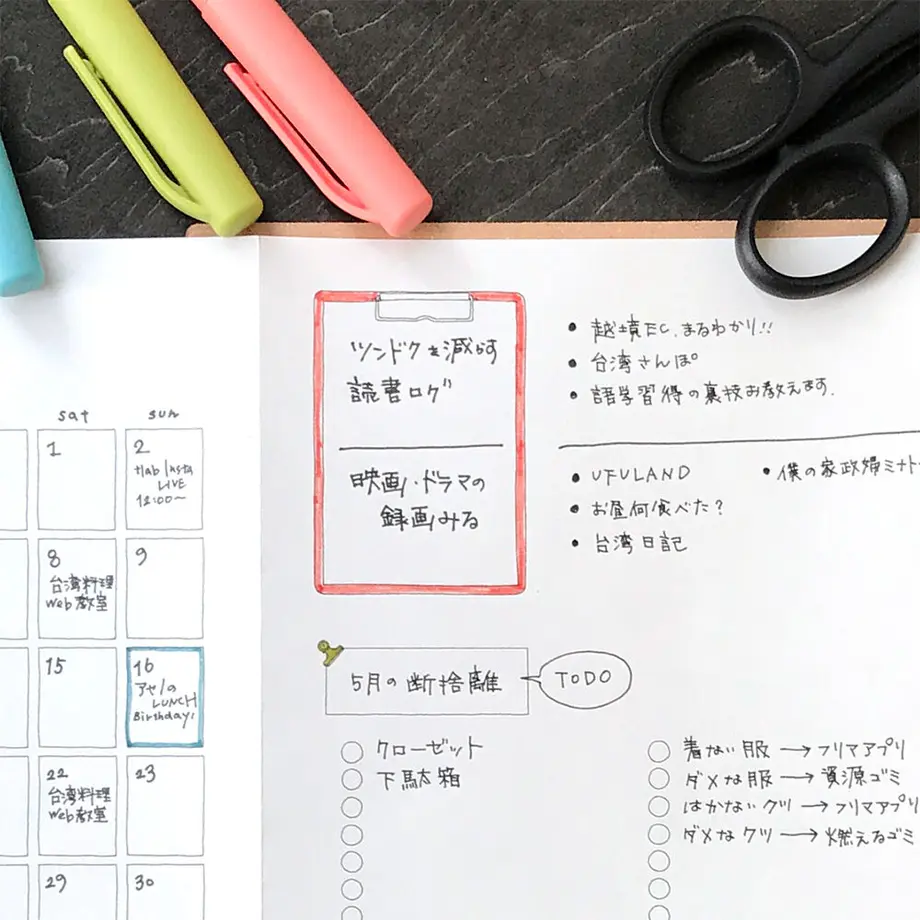 sat sun
1
2
Hab Insta
LIVE
12:00〜
8
台湾料理
Web教室
9
15
16
LUNCH
Birthday!
22
台湾料理
Web教室
23
29
30
ツンドクを減らす
読書ログ
映画・ドラマの
録画みる
• 越境EC、まるわかり!!
• 台湾さんぽ
• 語学習得の裏技お教えます。
• UFULAND
• お昼何食べた?
• 台湾日記
• 僕の家政婦ミナト
5月の断捨離
TODO
クローゼット
下駄箱
着ない服→フリマアプリ
ダメな服→資源ゴミ
はかないクツ→フリマアプリ
ダメなクツ→燃えるゴミ